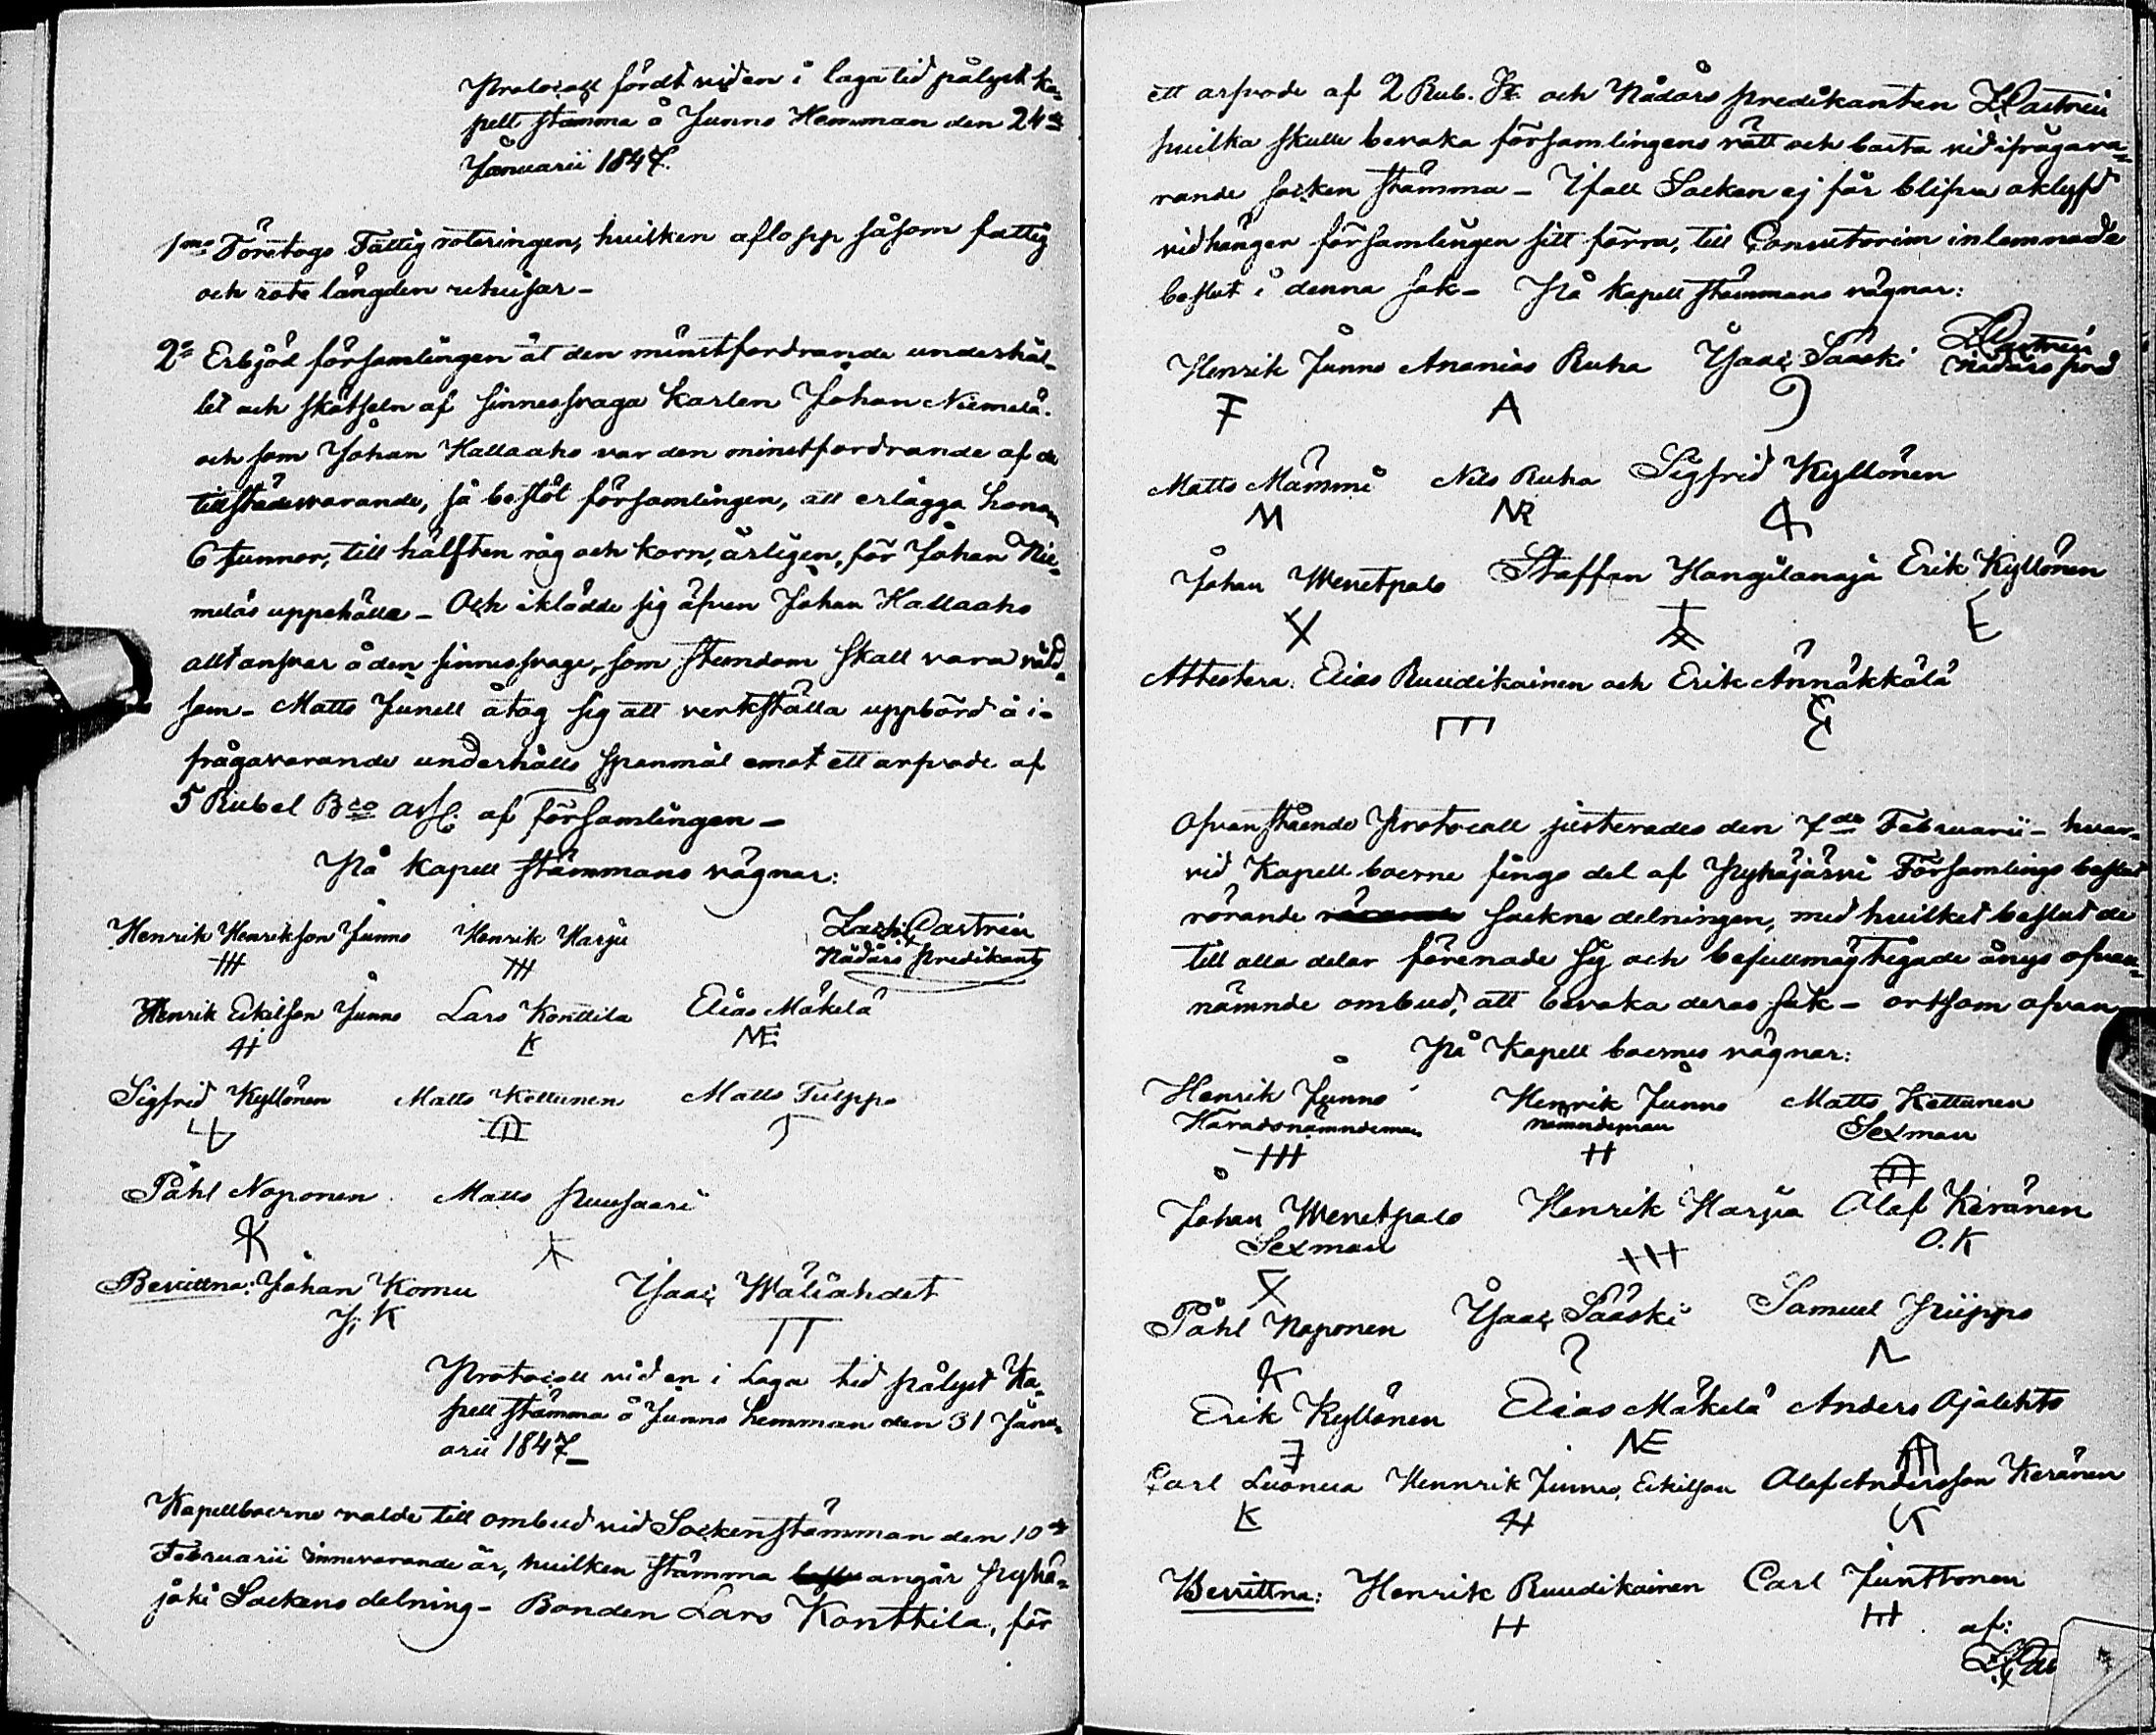 Protocoll fördt vid en i laga tid pålyst Ka-
pell stämma å Junno Hemman den 24de
Januarii 1847.
1mo Företogs Fattig roteringen, hvilken aflopp såsom fattig
och rote längden utvisar -
2o Erbjöd församlingen åt den minstfordrande underhål-
let och skötseln af sinnessvaga karlen Johan Niemelä.
och som Johan Hallaaho var den minstfordrande af de
tillstädesvarande, så beslöt församlingen, att erlägga honom
6 tunnor, till hälften råg och korn, årligen, för Johan Nie-
meläs uppehälle - Och iklädde sig äfven Johan Hallaaho
allt ansvar å den sinnessvage, som stundom skall vara våld-
sam - Matts Junell åtog sig att verkställa uppbörd å i-
frågavarande underhålls spanmål emot ett arfvode af
5 Rubel Bco ass. af församlingen -
På kapell stämmans vägnar:
Henrik Henrikson Junno Henrik Harju Zach: Castrén
Nådårs Predikant
Henrik Eskilson Junno Lars Konttila Elias Mäkelä
NE
Sigfrid Kyllönen Matts Kettunen Matts Tulppo
Påhl Noponen Matts Puusaari
Bevittna: Johan Komu Isaac Wäliahdet
J. K
Protocoll vid en i Laga tid pålyst Ka-
pell stämma å Junno hemman den 31 Janu-
arii 1847 -
Kapellboerne valde till ombud vid Sockenstämman den 10de
Februarii innevarande år, hvilken stämma angår Pyhä-
joki Sockens delning - Bonden Lars Konttila, för
ett arfvode af 2 Rub. Sr och Nådårs predikanten Z Castrén
hvilka skulle bevaka församlingens rätt och bästa vid ifrågava-
rande socken stämma - Ifall Socken ej får blifva åklyfd
vidhänger församlingen sitt förra, till Consistorium inlemnade
beslut i denna sak - På kapell stämmans vägnar:
Henrik Junno Ananias Ruha Isaac Sääski Z Castrén
Nådårs pred
A
Matts Mämmi Nils Ruha Sigfrid Kyllönen
M NR
Johan Wenetpalo Staffan Kangilanaja Erik Kyllönen
E
Attestera: Elias Ruudikainen och Erik Ännäkkälä
Ofvanstående Protocoll justerades den 7de Februarii - hvar-
vid Kapell boerne fingo del af Pyhäjärvi Församlings beslut
rörande sockne delningen, med hvilket beslut de
till alla delar förenade sig och befullmägtigade ånyo ofvan-
nämnde ombud, att bevaka deras sak - ort som ofvan
På Kapell boernes vägnar:
Henrik Junno Henrik Junno Matts Kettunen
Häradsnämndeman nämndeman Sexman
H
Johan Wenetpalo Henrik Harju Olof Keränen
Sexman O. K
Påhl Noponen Isaac Sääski Samuel Piippo
K
Erik Kyllönen Elias Mäkelä Anders Ojalehto
NE
Carl Luonua Hennrik Junno, Eskilson Olof Andersson Keränen
Bevittna: Henrik Ruudikainen Carl Junttonen
H
af: